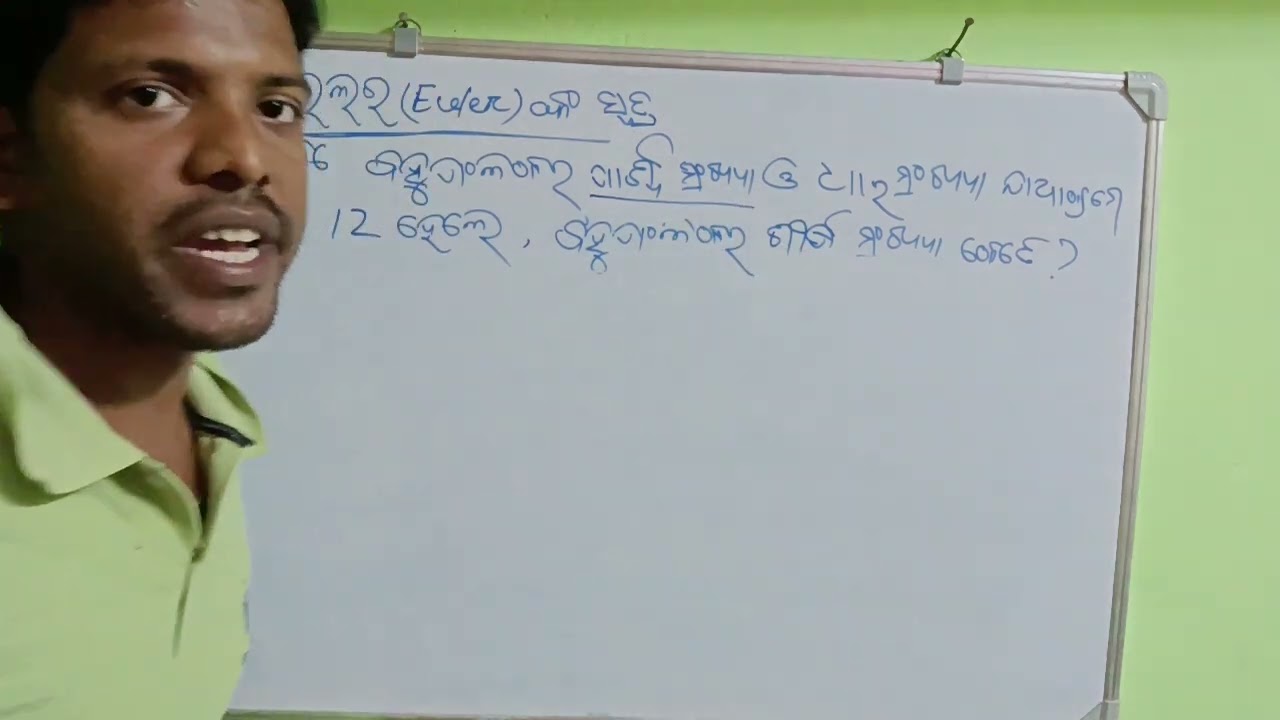 ଇଲର (Euler) ଙ୍କ ସୂତ୍ର
ବହୁଫଳକର ପାର୍ଶ୍ୱ ସଂଖ୍ୟା ଓ ଧାର ସଂଖ୍ୟା ଯଥାକ୍ରମେ
12 ହେଲେ, ବହୁଫଳକର ଶୀର୍ଷ ସଂଖ୍ୟା କେତେ?